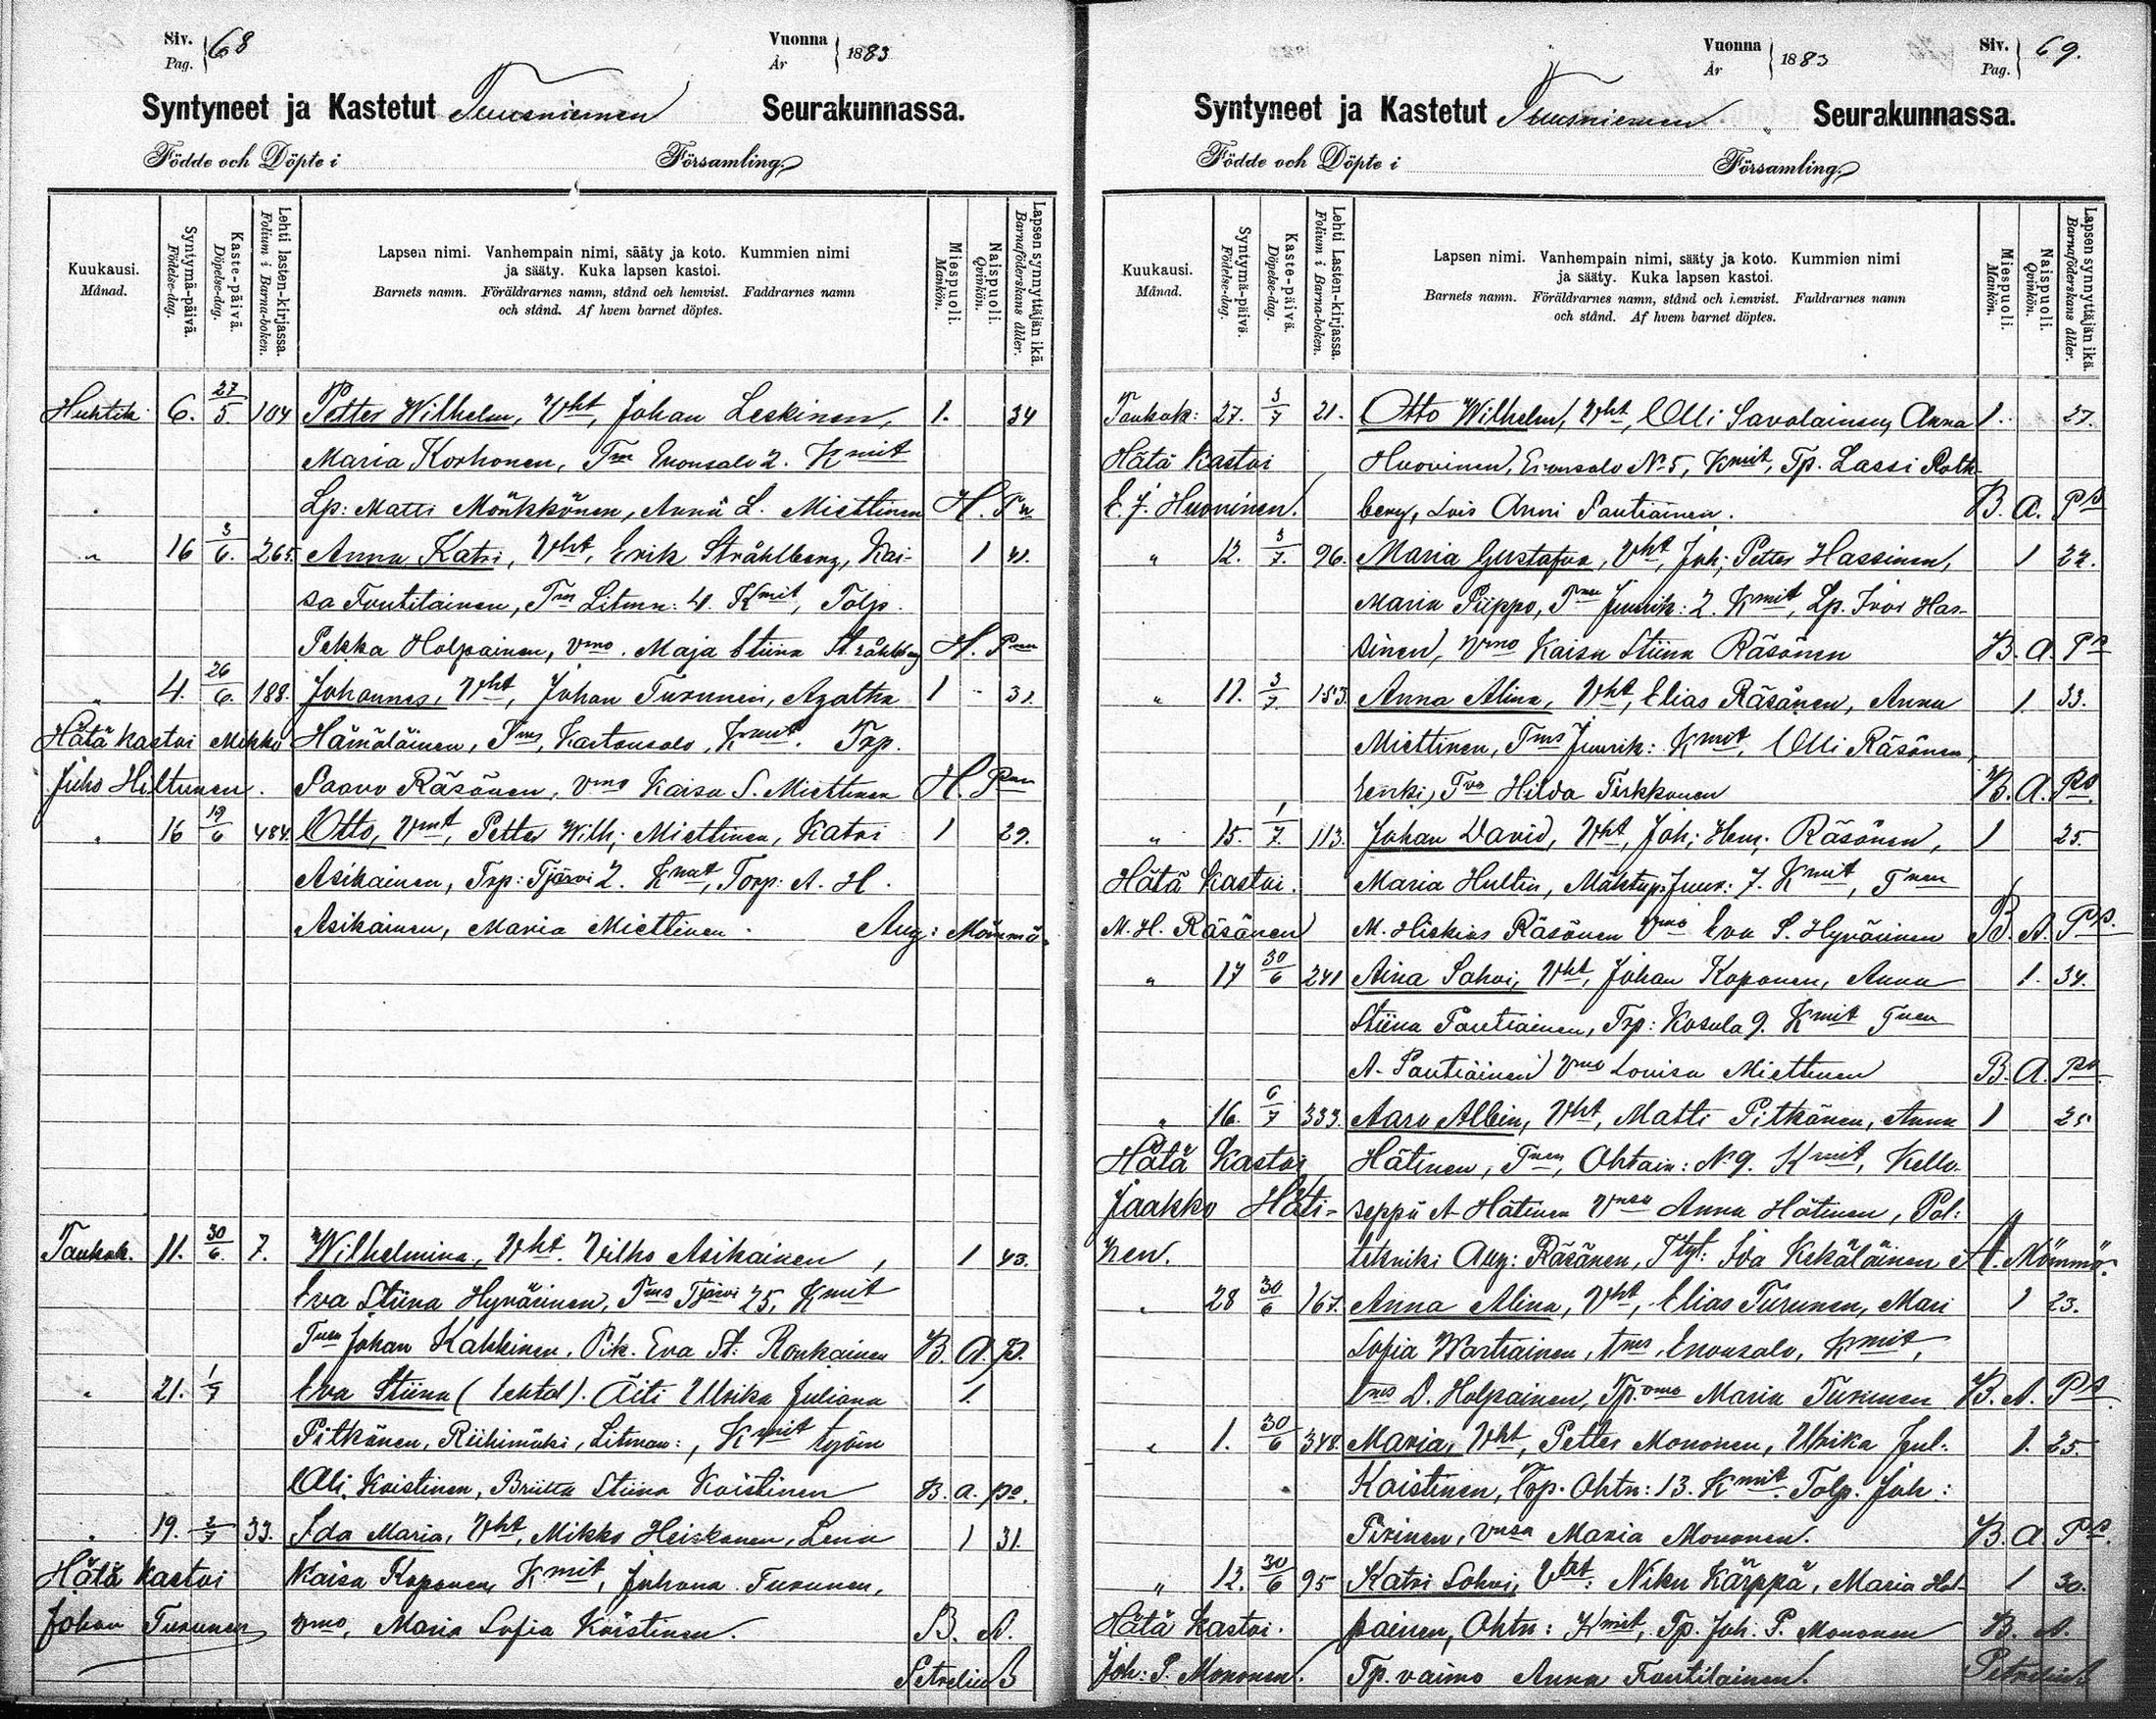 Siv. Pag. 68 Vuonna År 1883
Syntyneet ja Kastetut Tuusniemen Seurakunnassa.
Födde och Döpte i Församling.
Kuukausi. Månad. Syntymä-päivä. Födelse-dag. Kaste-päivä. Döpelse-dag. Lehti lasten-kirjassa. Folium i Barna-boken. Lapsen nimi. Vanhempain nimi, sääty ja koto. Kummien nimi ja sääty. Kuka lapsen kastoi. Barnets namn. Föräldrarnes namn, stånd och hemvist. Faddrarnes namn och stånd. Af hvem barnet döptes. Miespuoli. Mankön. Naispuoli. Qvinkön. Lapsen synnyttäjän ikä. Barnaföderskans ålder.
Huhtik. 6. 27/5. 104 Petter Wilhelm, Vht, Johan Leskinen, 1. 34
Maria Korhonen, Tm Enonsalo 2. Kmit
Lp: Matti Mönkkönen, Anna L. Miettinen H. Pn
" 16 3/6. 265. Anna Katri, Vht, Erik Stråhlberg, Kai- 1 41.
sa Tontilainen, Tm Litmn: 4. Kmit, Tolp.
Pekka Holpainen, vmo. Maja Stiina Stråhlberg H. Pnn
" 4. 26/6. 188. Johannes, Vht, Johan Turunen, Agatha 1 " 31.
Hätä kastoi Mikko Hämäläinen, Tms, Kartonsalo, Kmit. Trp.
Juho Hiltunen. Paavo Räsänen, vmo Kaisa S. Miettinen H. Pnn
" 16 19/6 484. Otto, Vmt, Petter Wilh; Miettinen, Katri 1 29.
Asikainen, Trp: Tjärvi 2. Kmit, Torp: A. H.
Asikainen, Maria Miettinen. Aug: Mömmö.
Toukok. 11. 30/6. 7. Wilhelmina, Vht. Vilho Asikainen, 1 43.
Eva Stiina Hyvärinen, Tms Tjärvi 25, Kmit
Tnen Johan Kakkinen, Pik. Eva St: Ronkainen B. A. P.
" 21. 1/7 Eva Stiina (lehtol). Äiti Ulrika Juliana 1.
Pitkänen, Riihimäki, Litman:, Kmit työm
Olli Koistinen, Briitta Stiina Koistinen B. A. Ps.
" 19. 2/7 33. Ida Maria, Vht, Mikko Heiskanen, Lena 1 31.
Hätä kastoi Kaisa Koponen, Kmit, Juhana Turunen,
Johan Turunen vmo, Maria Sofia Koistinen. B. A.
Petrelius
Vuonna År 1883 Siv. Pag. 69.
Syntyneet ja Kastetut Tuusniemen Seurakunnassa.
Födde och Döpte i Församling.
Kuukausi. Månad. Syntymä-päivä. Födelse-dag. Kaste-päivä. Döpelse-dag. Lehti Lasten-kirjassa. Folium i Barna-boken. Lapsen nimi. Vanhempain nimi, sääty ja koto. Kummien nimi ja sääty. Kuka lapsen kastoi. Barnets namn. Föräldrarnes namn, stånd och i.emvist. Faddrarnes namn och stånd. Af hvem barnet döptes. Miespuoli. Mankön. Naispuoli. Qvinkön. Lapsen synnyttäjän ikä. Barnaföderskans ålder.
Toukok: 27. 3/7 21. Otto Wilhelm, Vht, Olli Savolainen, Anna 1. 27.
Hätä kastoi Huovinen, Enonsalo No 5, Kmit, Tp. Lassi Roth-
E. J. Huovinen. berg, Lois Anni Pautiainen. B. A. Ps
" 12. 3/7. 96. Maria Gustafva, Vht, Joh; Petter Hassinen, 1 22.
Maria Piippo, Tnn Juurik: 2. Kmit, Lp. Ivar Has-
sinen, Vmo Kaisa Stiina Räsänen B. A. Ps
" 11. 3/7. 153. Anna Alina, Vht, Elias Räsänen, Anna 1. 33.
Miettinen, Tms Juurik: Kmit, Olli Räsänen,
Lenki, Tvo Hilda Tirkkonen B. A. Ps.
" 15. 1/7. 113. Johan David, Vht, Joh; Hen; Räsänen, 1 25.
Hätä kastoi. Maria Hultin, Mäktup. Juur: 7. Kmit, Tnen
M. H. Räsänen M. Hiskias Räsänen Vmo Eva S. Hyvärinen B. A. Ps.
" 17 30/6 241 Aina Sohvi, Vht, Johan Koponen, Anna 1. 34.
Stiina Pautiainen, Trp: Kosula 9. Kmit Tnen
A. Pautiainen Vmo Lovisa Miettinen B. A. Ps.
" 16. 6/7 333. Aaro Albin, Vht, Matti Pitkänen, Anna 1 25
Hätä kastoi Hätinen, Tnen, Ohtain: No 9. Kmit, Kello-
Jaakko Häti- seppä A Hätinen Vnsa Anna Hätinen, Pol:
nen. tekniki Aug: Räsänen, Ttyt: Ida Kekäläinen A. Mömmö.
" 28 30/6 167. Anna Alina, Vht, Elias Turunen, Mari 1 23.
Sofia Wartiainen, tms, Enonsalo, Kmit,
tms D. Holpainen, Tp. vmo Maria Turunen B. A. Ps.
" 1. 30/6 348. Maria, Vht, Petter Mononen, Ulrika Jul: 1. 25.
Koistinen, Trp. Ohtn: 13. Kmit. Tolp. Joh:
Pirinen, vnsa Maria Mononen. B. A. Ps.
" 12. 30/6 95 Katri Sohvi, Vht: Niku Kärppä, Maria Hol- 1 30.
Hätä kastoi. painen, Ohtn: Kmit, Tp. Joh. P. Mononen B. A.
Joh: P. Mononen. Tp. vaimo Anna Tontilainen. Petrelius